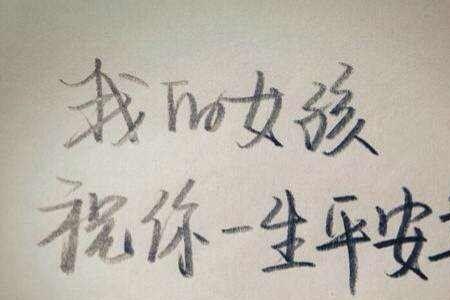 我的女孩
祝你一生平安